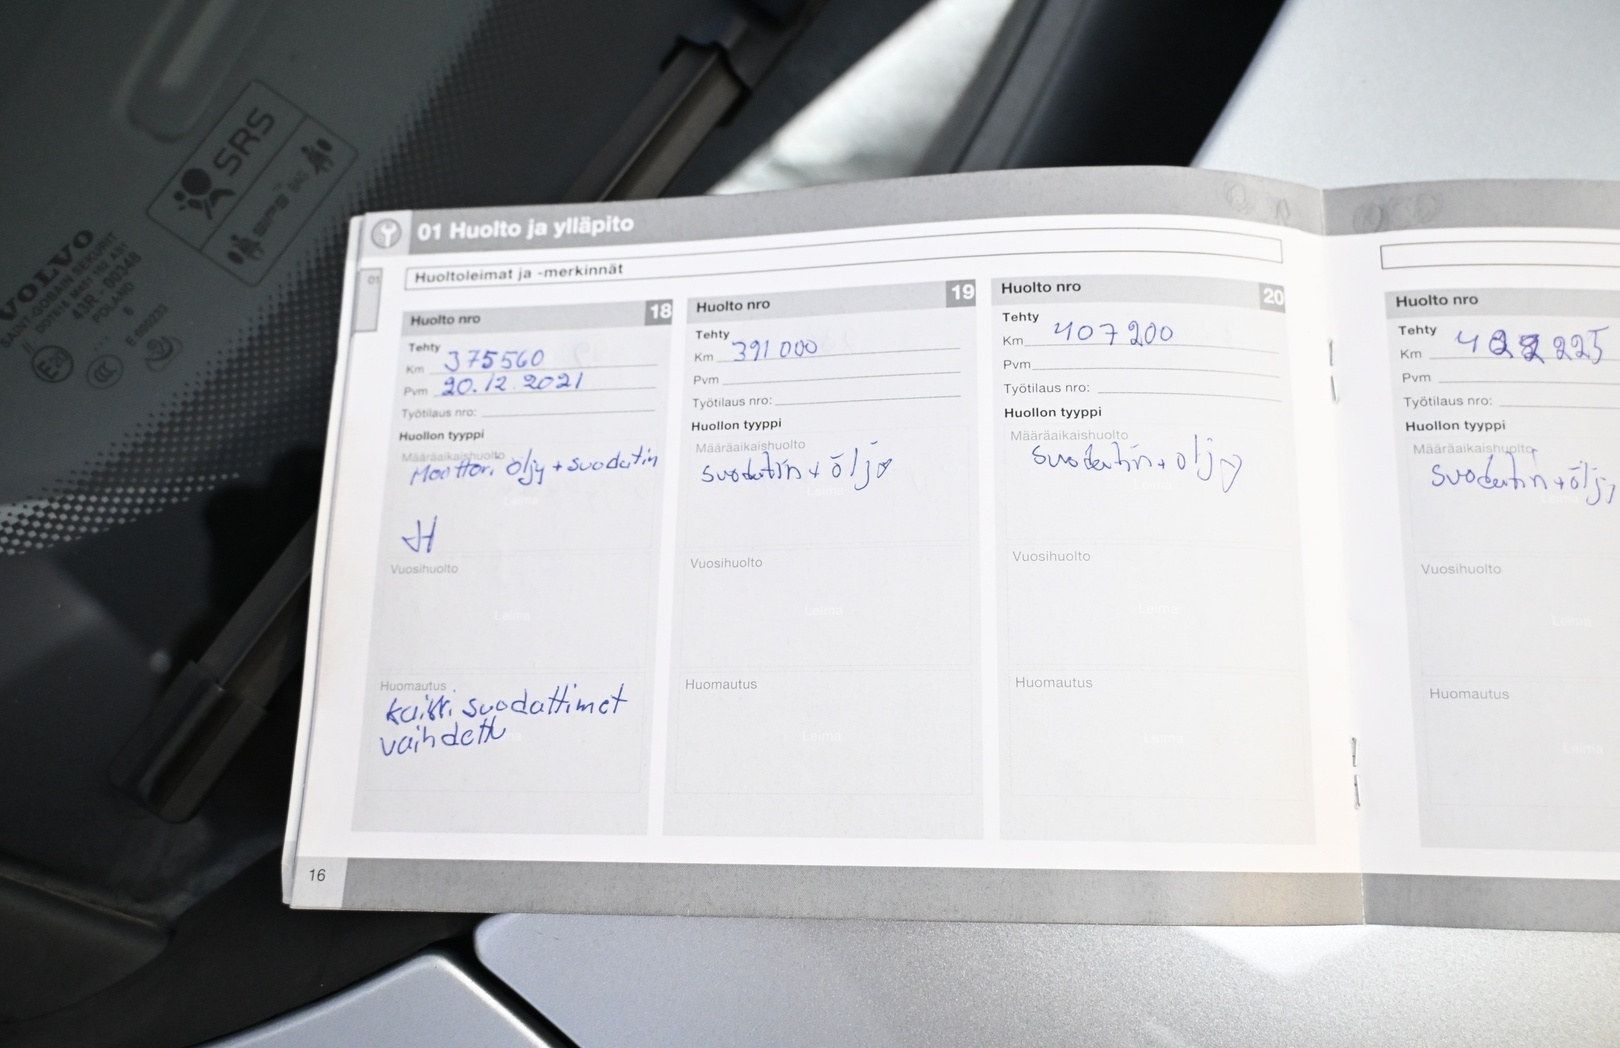 SRS
VOLVO
SAINT-GOBAIN SEKURIT
43R - 00048
POLAND
01 Huolto ja ylläpito
01
Huoltoleimat ja -merkinnät
Huolto nro 18
Tehty
Km 375560
Pvm 20.12.2021
Työtilaus nro:
Huollon tyyppi
Määräaikaishuolto
Moottori öljy + suodatin
Leima
Vuosihuolto
Leima
Huomautus
Kaikki suodattimet
vaihdettu
Huolto nro 19
Tehty
Km 391 000
Pvm
Työtilaus nro:
Huollon tyyppi
Määräaikaishuolto
suodatin + öljy
Leima
Vuosihuolto
Leima
Huomautus
Leima
Huolto nro 20
Tehty
Km 407200
Pvm
Työtilaus nro:
Huollon tyyppi
Määräaikaishuolto
suodatin + öljy
Leima
Vuosihuolto
Leima
Huomautus
Leima
Huolto nro
Tehty
Km
Pvm
Työtilaus nro:
Huollon tyyppi
Määräaikaishuolto
suodatin + öljy
Vuosihuolto
Leima
Huomautus
Leima
16